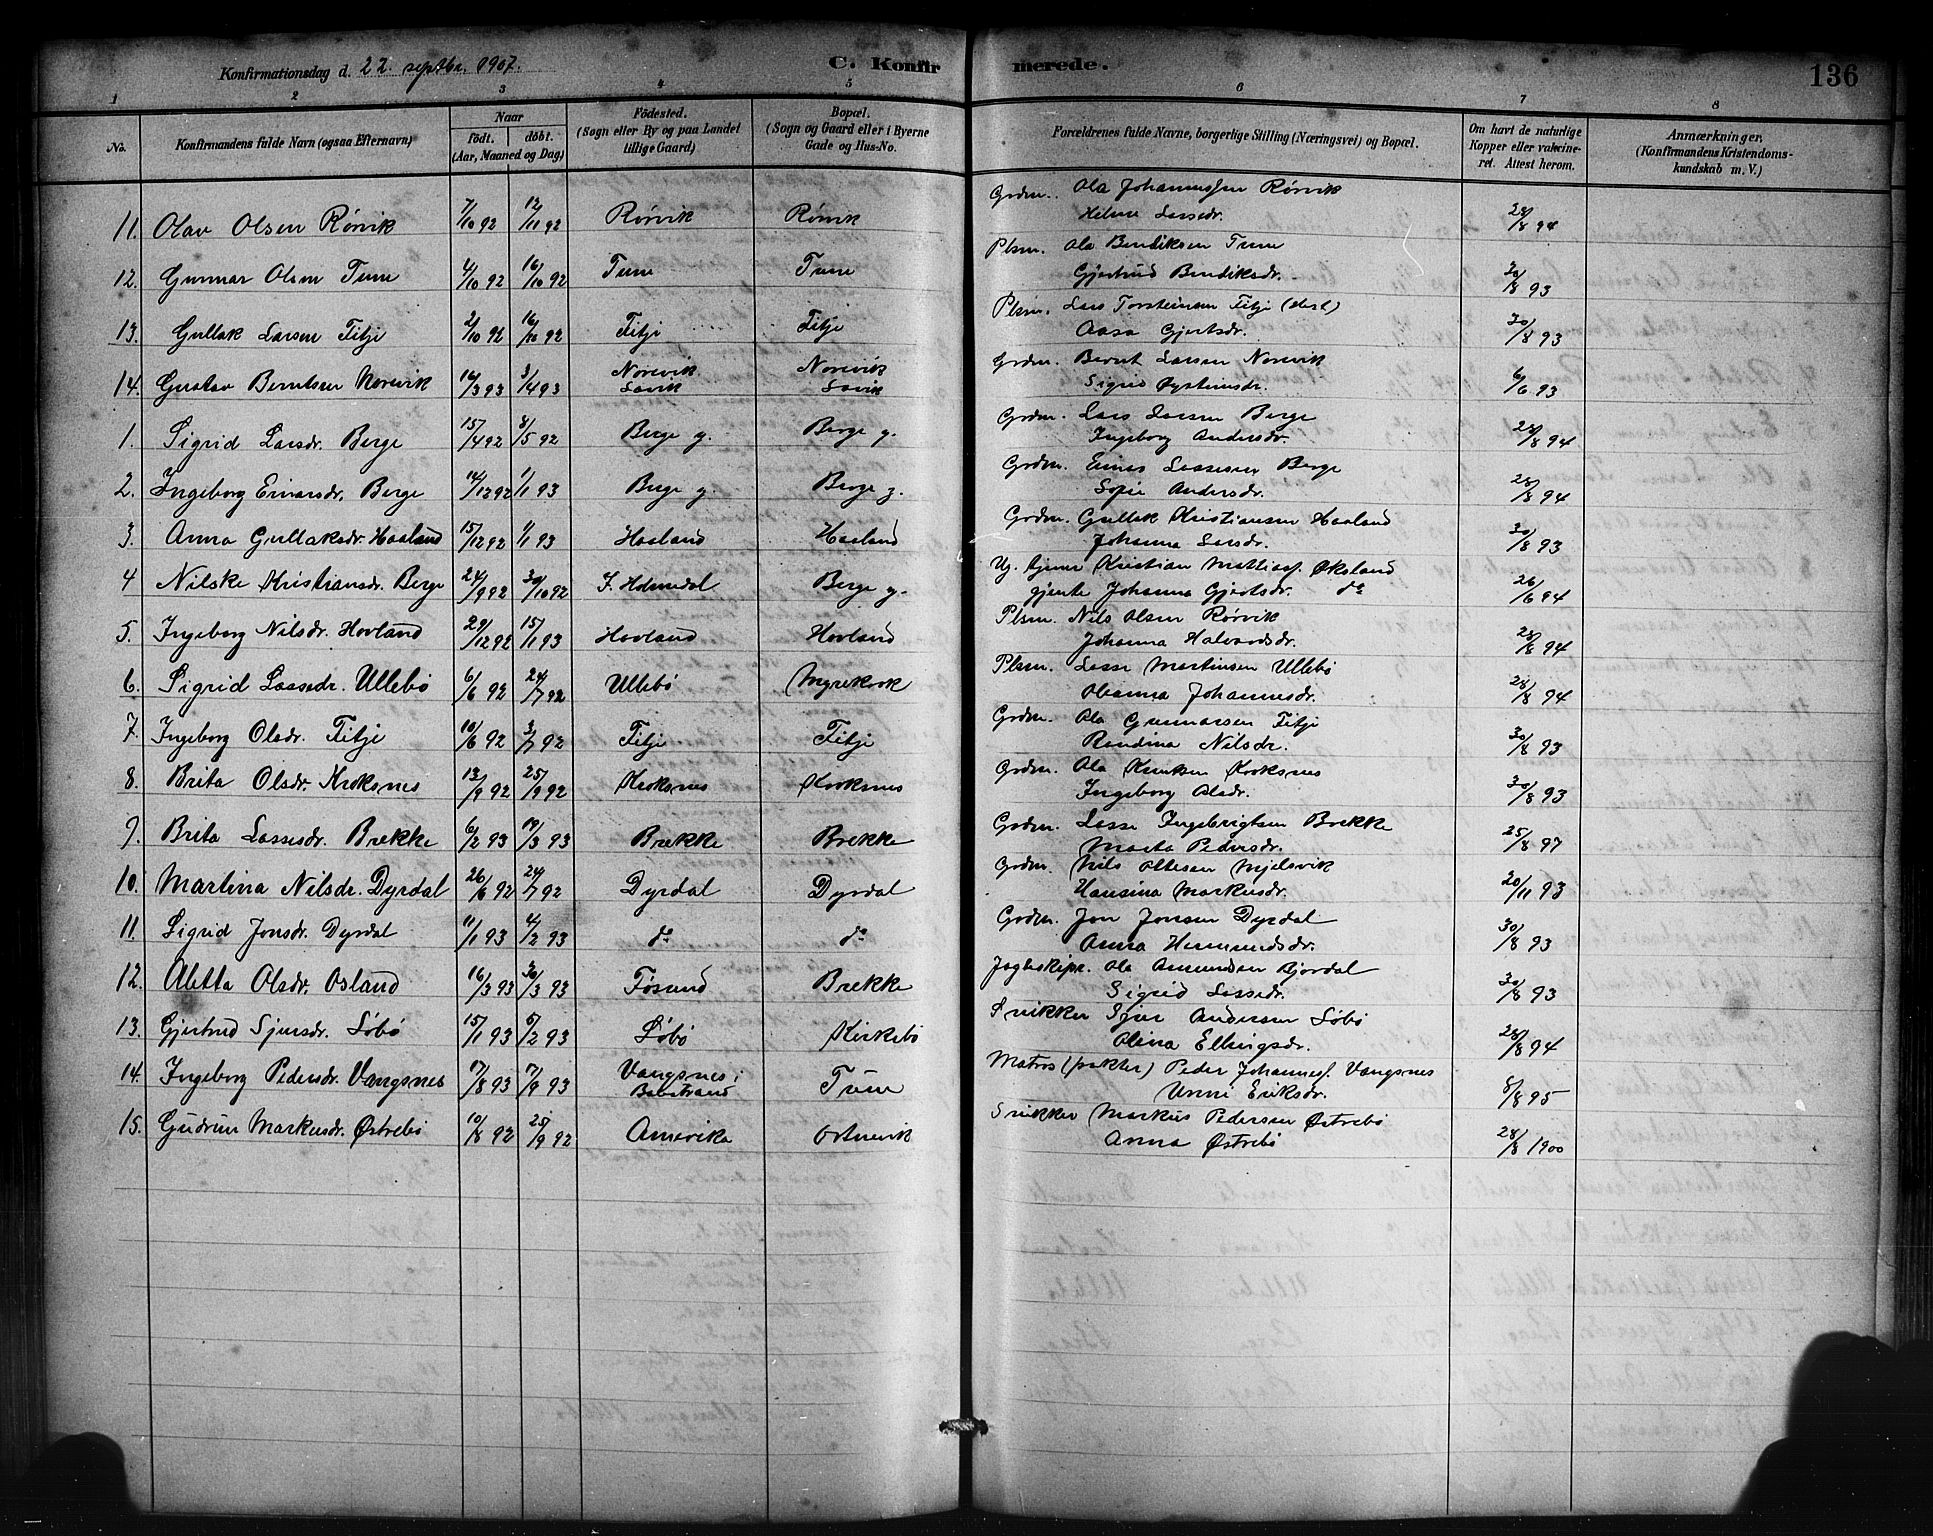 Konfirmationsdag d. 22 septbr. 1907. C. Konfirmerede. 136
1 2 3 4 5 6 7 8
No. Konfirmandens fulde Navn (ogsaa Efternavn) Naar födt. döbt. (Aar, Maaned og Dag) Födested. (Sogn eller By og paa Landet tillige Gaard) Bopæl. (Sogn og Gaard eller i Byerne Gade og Hus-No. Forældrenes fulde Navne, borgerlige Stilling (Næringsvei) og Bopæl. Om havt de naturlige Kopper eller vakcineret. Attest herom. Anmærkninger, (Konfirmandens Kristendomskundskab m. V.)
11. Olav Olsen Rørvik 7/10 92 12/11 92 Rørvik Rørvik Grdm. Ola Johannessen Rørvik
Helene Larsdr. 28/8 94
12. Gunnar Olsen Tune 4/10 92 16/10 92 Tune Tune Plsm. Ola Bendiksen Tune
Gjertrud Bendiksdr. 30/8 93
13. Gullak Larsen Fitje 2/10 92 16/10 92 Fitje Fitje Plsm. Lars Torsteinsen Fitje
Aasa Gjertsdr. 30/8 93
14. Gustav Berntsen Norevik 16/3 93 3/4 93 Norevik Lavik Norevik Lavik Grdm. Bernt Larsen Norevik
Sigrid Øysteinsdr. 6/6 93
1. Sigrid Larsdr. Berge 15/4 92 8/5 92 Berge y. Berge y. Grdm. Lars Larsen Berge
Ingeborg Andersdr. 28/8 94
2. Ingeborg Einarsdr. Berge 14/12 92 1/1 93 Berge y. Berge y. Grdm. Einar Lassesen Berge
Sofie Andersdr. 28/8 94
3. Anna Gullaksdr. Haaland 15/12 92 1/1 93 Haaland Haaland Grdm. Gullak Kristiansen Haaland
Johanna Larsdr. 30/8 93
4 Nilske Kristiansdr. Berge 24/9 92 30/10 92 Y. Holmedal Berge y. Ug. tjener Kristian Mattiass. Øksland
gjente Johanna Gjertsdr. do 26/6 94
5. Ingeborg Nilsdr. Hovland 29/12 92 15/1 93 Hovland Hovland Plsm. Nils Olsen Rørvik
Johanna Halvardsdr. 28/8 94
6. Sigrid Lassedr. Ullebø 6/6 92 24/7 92 Ullebø Myrekrok Plsm. Lasse Martinsen Ullebø
Oleanna Johannesdr. 28/8 94
7. Ingeborg Olsdr. Fitje 10/6 92 3/7 92 Fitje Fitje Grdm. Ola Gunnarsen Fitje
Rendina Nilsdr. 30/8 93
8. Brita Olsdr. Kroksnes 13/9 92 25/9 92 Kroksnes Kroksnes Grdm. Ola Knutsen Kroksnes
Ingeborg Olsdr. 30/8 93
9. Brita Lassesdr. Brekke 6/2 93 19/3 93 Brekke Brekke Grdm. Lasse Ingebrigtsen Brekke
Marta Pedersdr. 25/8 97
10. Martina Nilsdr. Dyrdal 26/6 92 24/7 92 Dyrdal Dyrdal Grdm. Nils Ottesen Mjelsvik
Hansina Markusdr. 20/11 93
11. Sigrid Jonsdr. Dyrdal 11/1 93 4/2 93 do do Grdm. Jon Jonsen Dyrdal
Anna Hermundsdr. 30/8 93
12. Aletta Olsdr. Osland 16/3 93 30/3 93 Tosund Brekke Jagteskipr. Ola Amundsen Bjordal
Sigrid Lassedr. 30/8 93
13. Gjertrud Sjursdr. Søbø 15/1 93 5/2 93 Søbø Kirkebø Snikker Sjur Andersen Søbø
Olina Ellingsdr. 28/8 94
14. Ingeborg Pedersdr. Vangsnes 7/8 93 7/9 93 Vangsnes i Balestrand Tune Matros Peder Johanness. Vangsnes
Unni Eriksdr. 8/8 95
15. Gudrun Markusdr. Østrebø 10/8 92 25/9 92 Amerika Ostrevik Snikker Markus Pedersen Østrebø
Anna Østrebø 28/8 1900